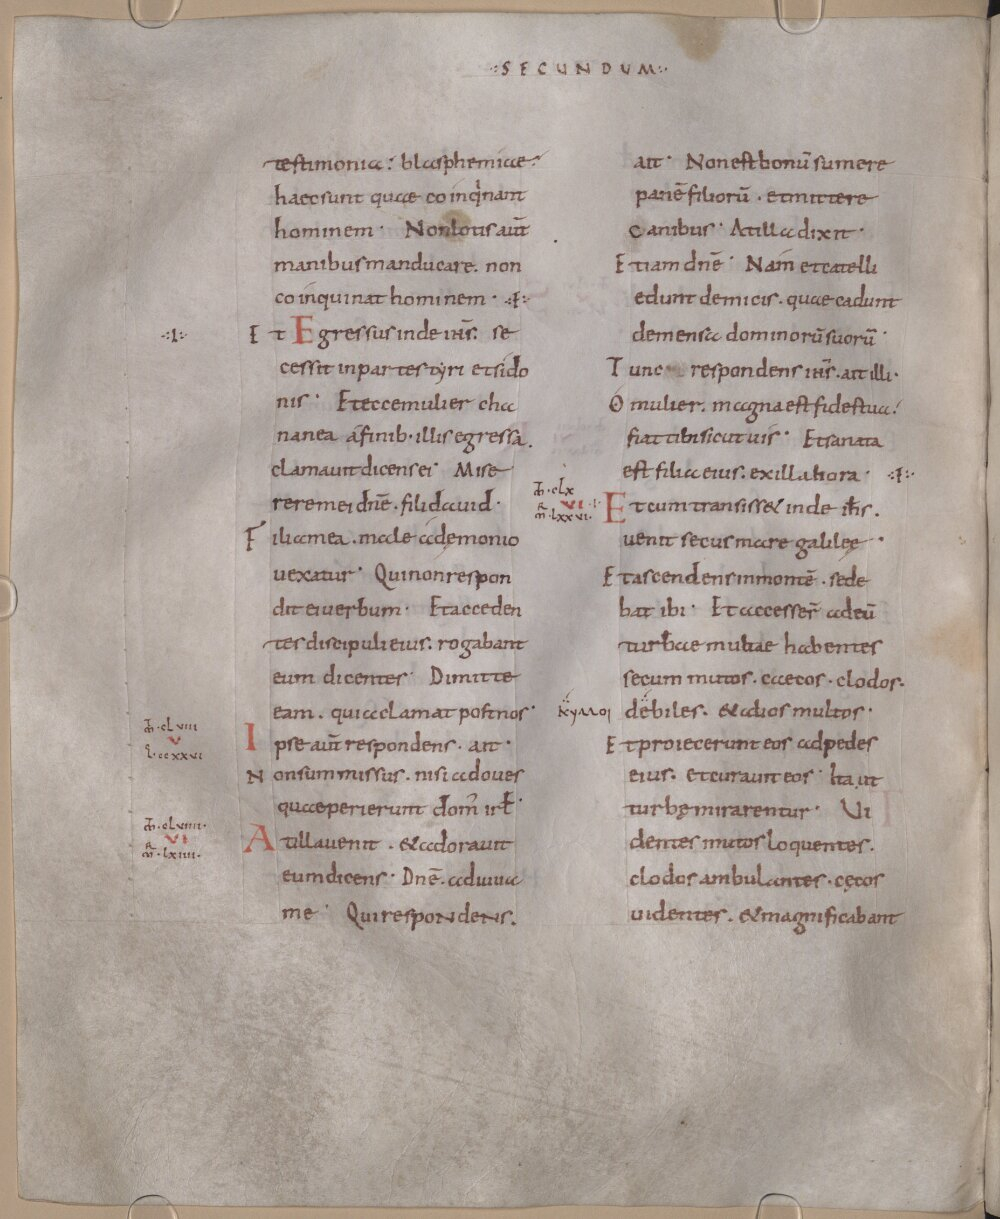 ·:SECUNDUM:·
testimonia: blasphemiae:
haec sunt quae coinq̓nant
hominem · Non lotis aut̄
manibus manducare. non
coinquinat hominem · ·:I:·
·:I:·
Et Egressus inde ih̄s. se
cessit in partes tyri et sido
nis · Et ecce mulier cha
nanea a finib· illis egressa.
clamauit dicens ei · Mise
rere mei dn̄e · fili dauid ·
Filia mea . male a demonio
uexatur · Qui non respon
dit ei uerbum · Et acceden
tes discipuli eius. rogabant
eum dicentes · Dimitte
eam . quia clamat post nos ·
·clviii
v
l·ccxxvi
Ipse aut̄ respondens · ait ·
Non sum missus . nisi ad oues
quae perierunt dom̄ isrł ·
·clviiii·
vi
m̄·lxiii·
At illa uenit . & adorauit
eum dicens · Dn̄e . adiuua
me · Qui respondens .
ait · Non est bonū sumere
panē filiorū . et mittere
canibus · At illa dixit ·
Etiam dn̄e · Nam et catelli
edunt de micis . quae cadunt
de mensa dominorū suorū ·
Tunc respondens ih̄s . ait illi ·
O mulier . magna est fides tua:
fiat tibi sicut uis · Et sanata
est filia eius . ex illa hora · ·:I:·
·clx
vi
m̄·lxxvi·
Et cum transiss& inde ih̄s .
uenit secus mare galileę ·
Et ascendens in montē . sede
bat ibi · Et accesser̄ ad eū
turbae multae habentes
secum mutos . caecos . clodos .
κυλλοι
debiles . & alios multos ·
Et proiecerunt eos ad pedes
eius . et curauit eos · Ita ut
turbę mirarentur · Ui
dentes mutos loquentes .
clodos ambulantes . cęcos
uidentes . & magnificabant